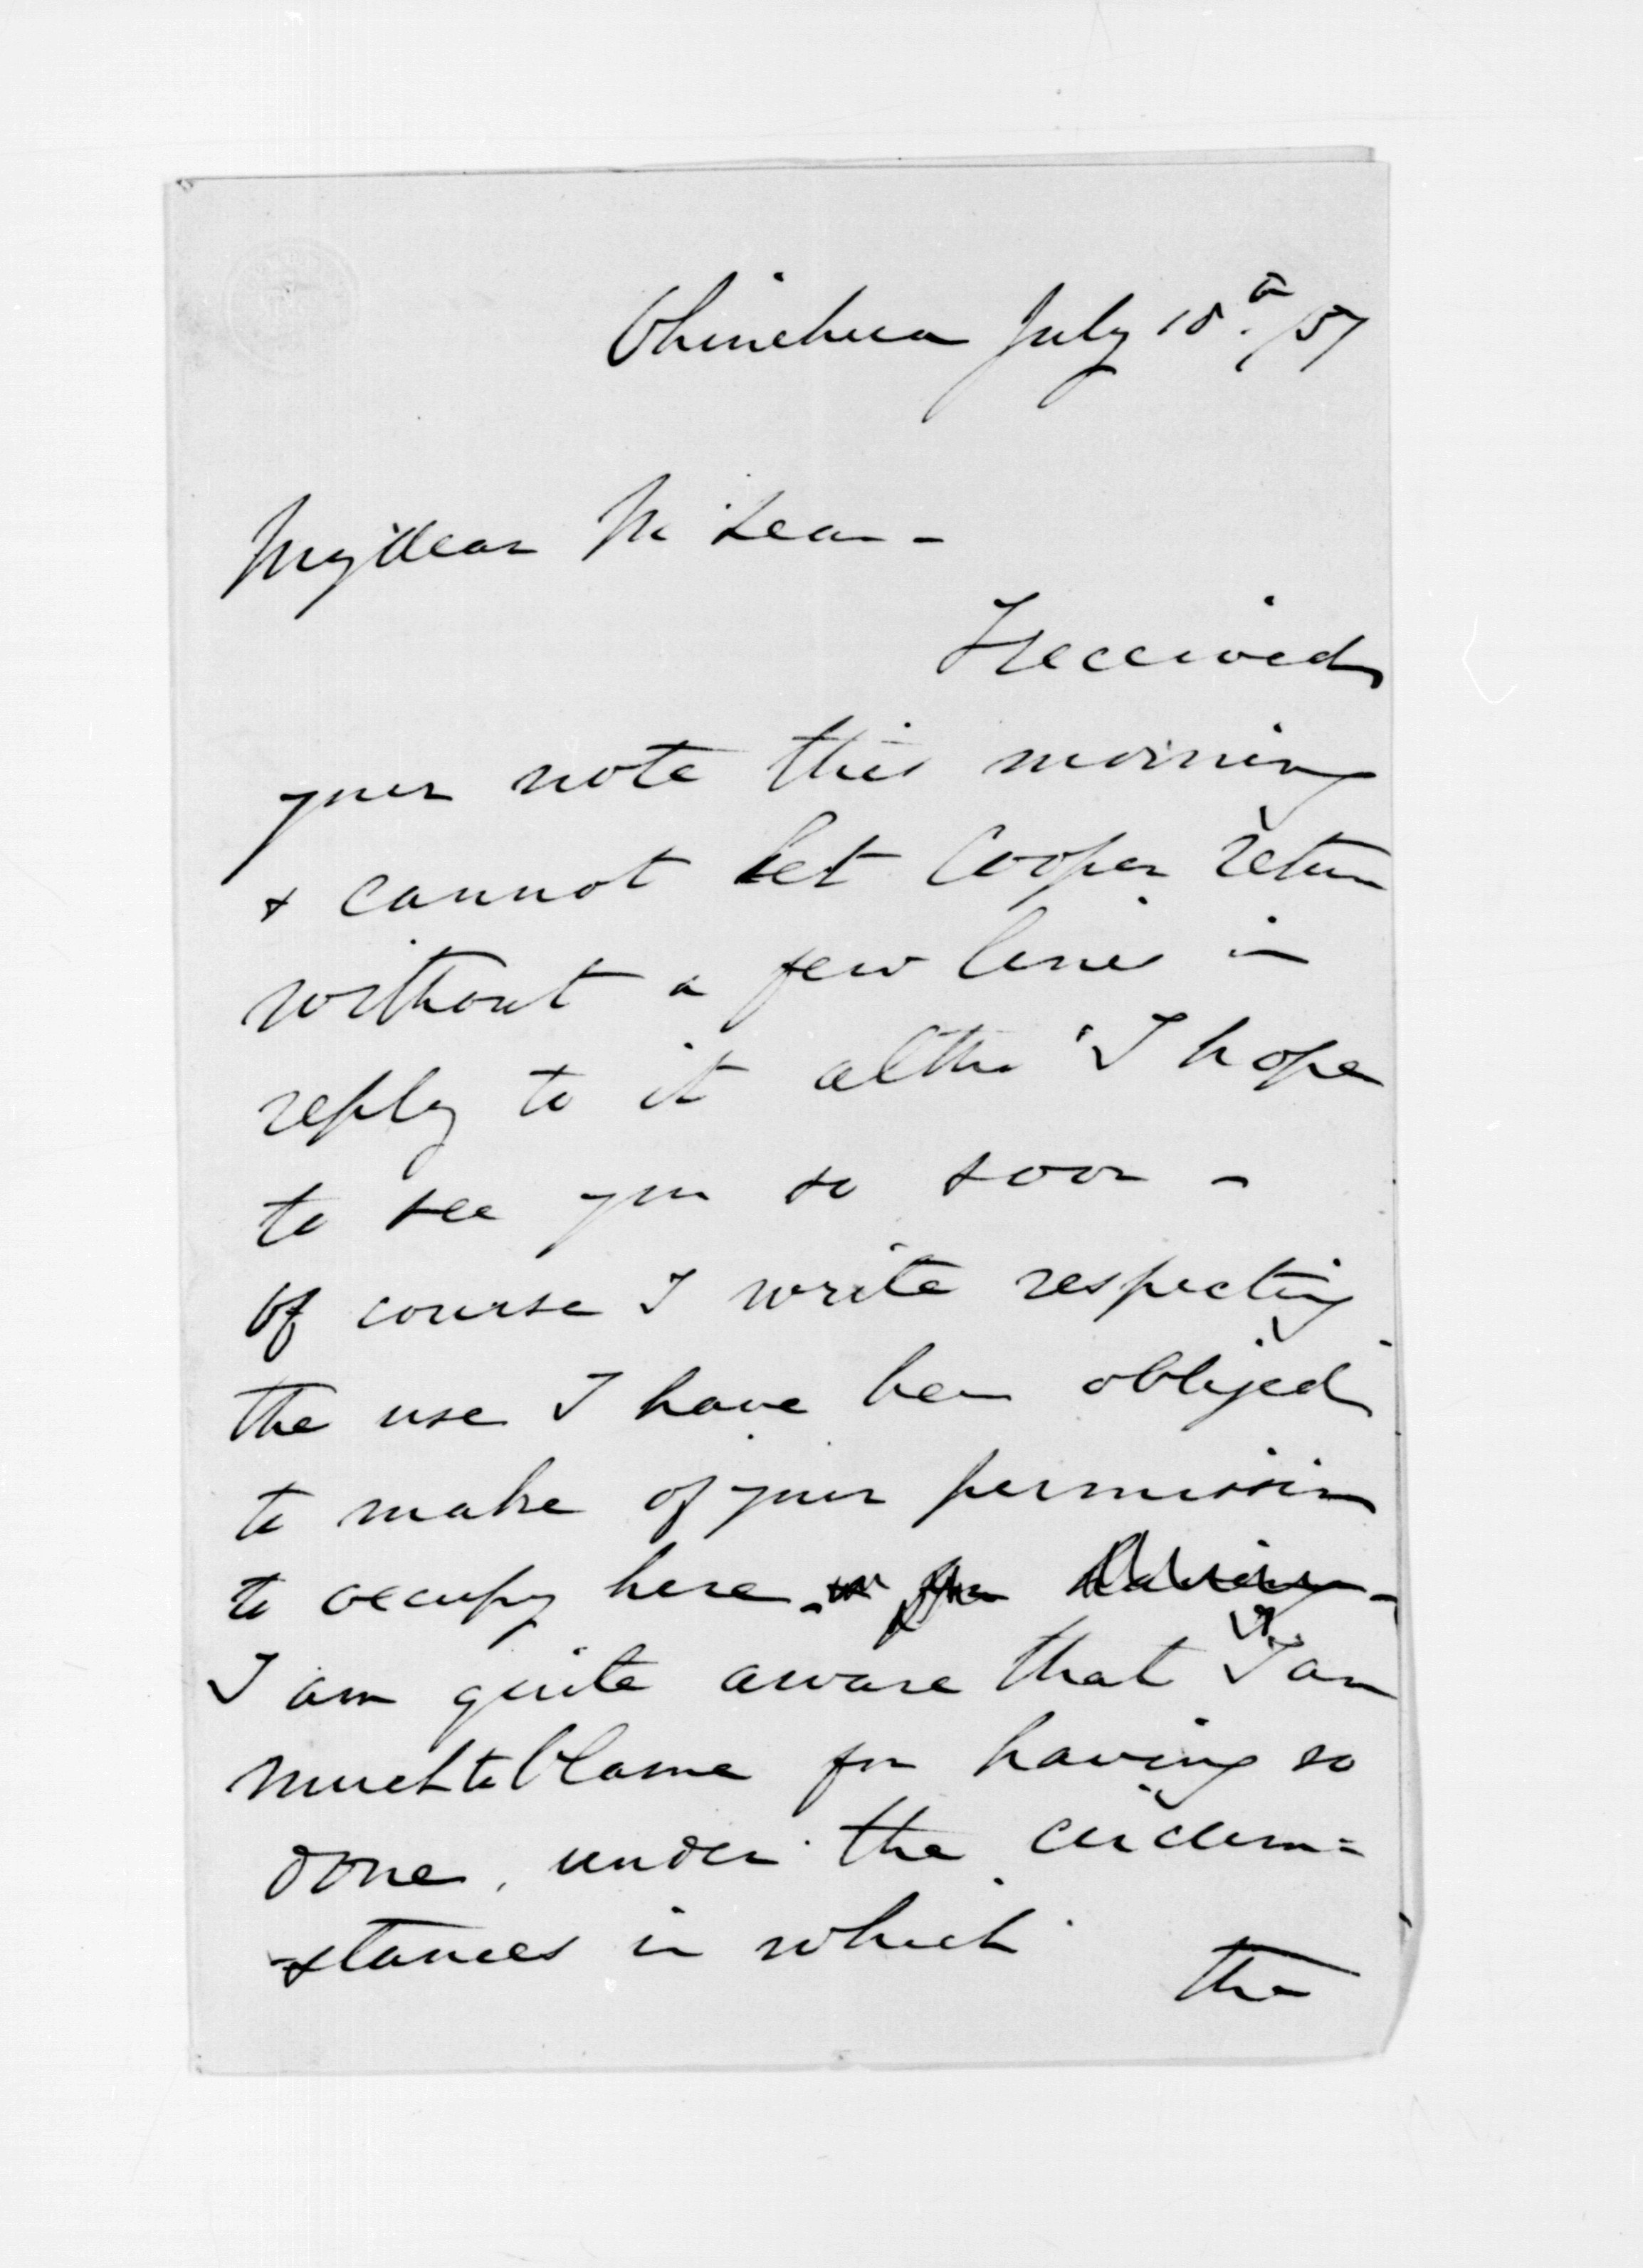 Ohinehua July 18th /57
My dear McLean -
I received
your note this morning
& cannot let Cooper return
without a few lines in
reply to it altho' I hope
to see you so soon -
Of course I write respecting
the use I have been obliged
to make of your permission
to occupy here -
I am quite aware that I am
much to blame for having so
done, under the circum=
-stances in which
the